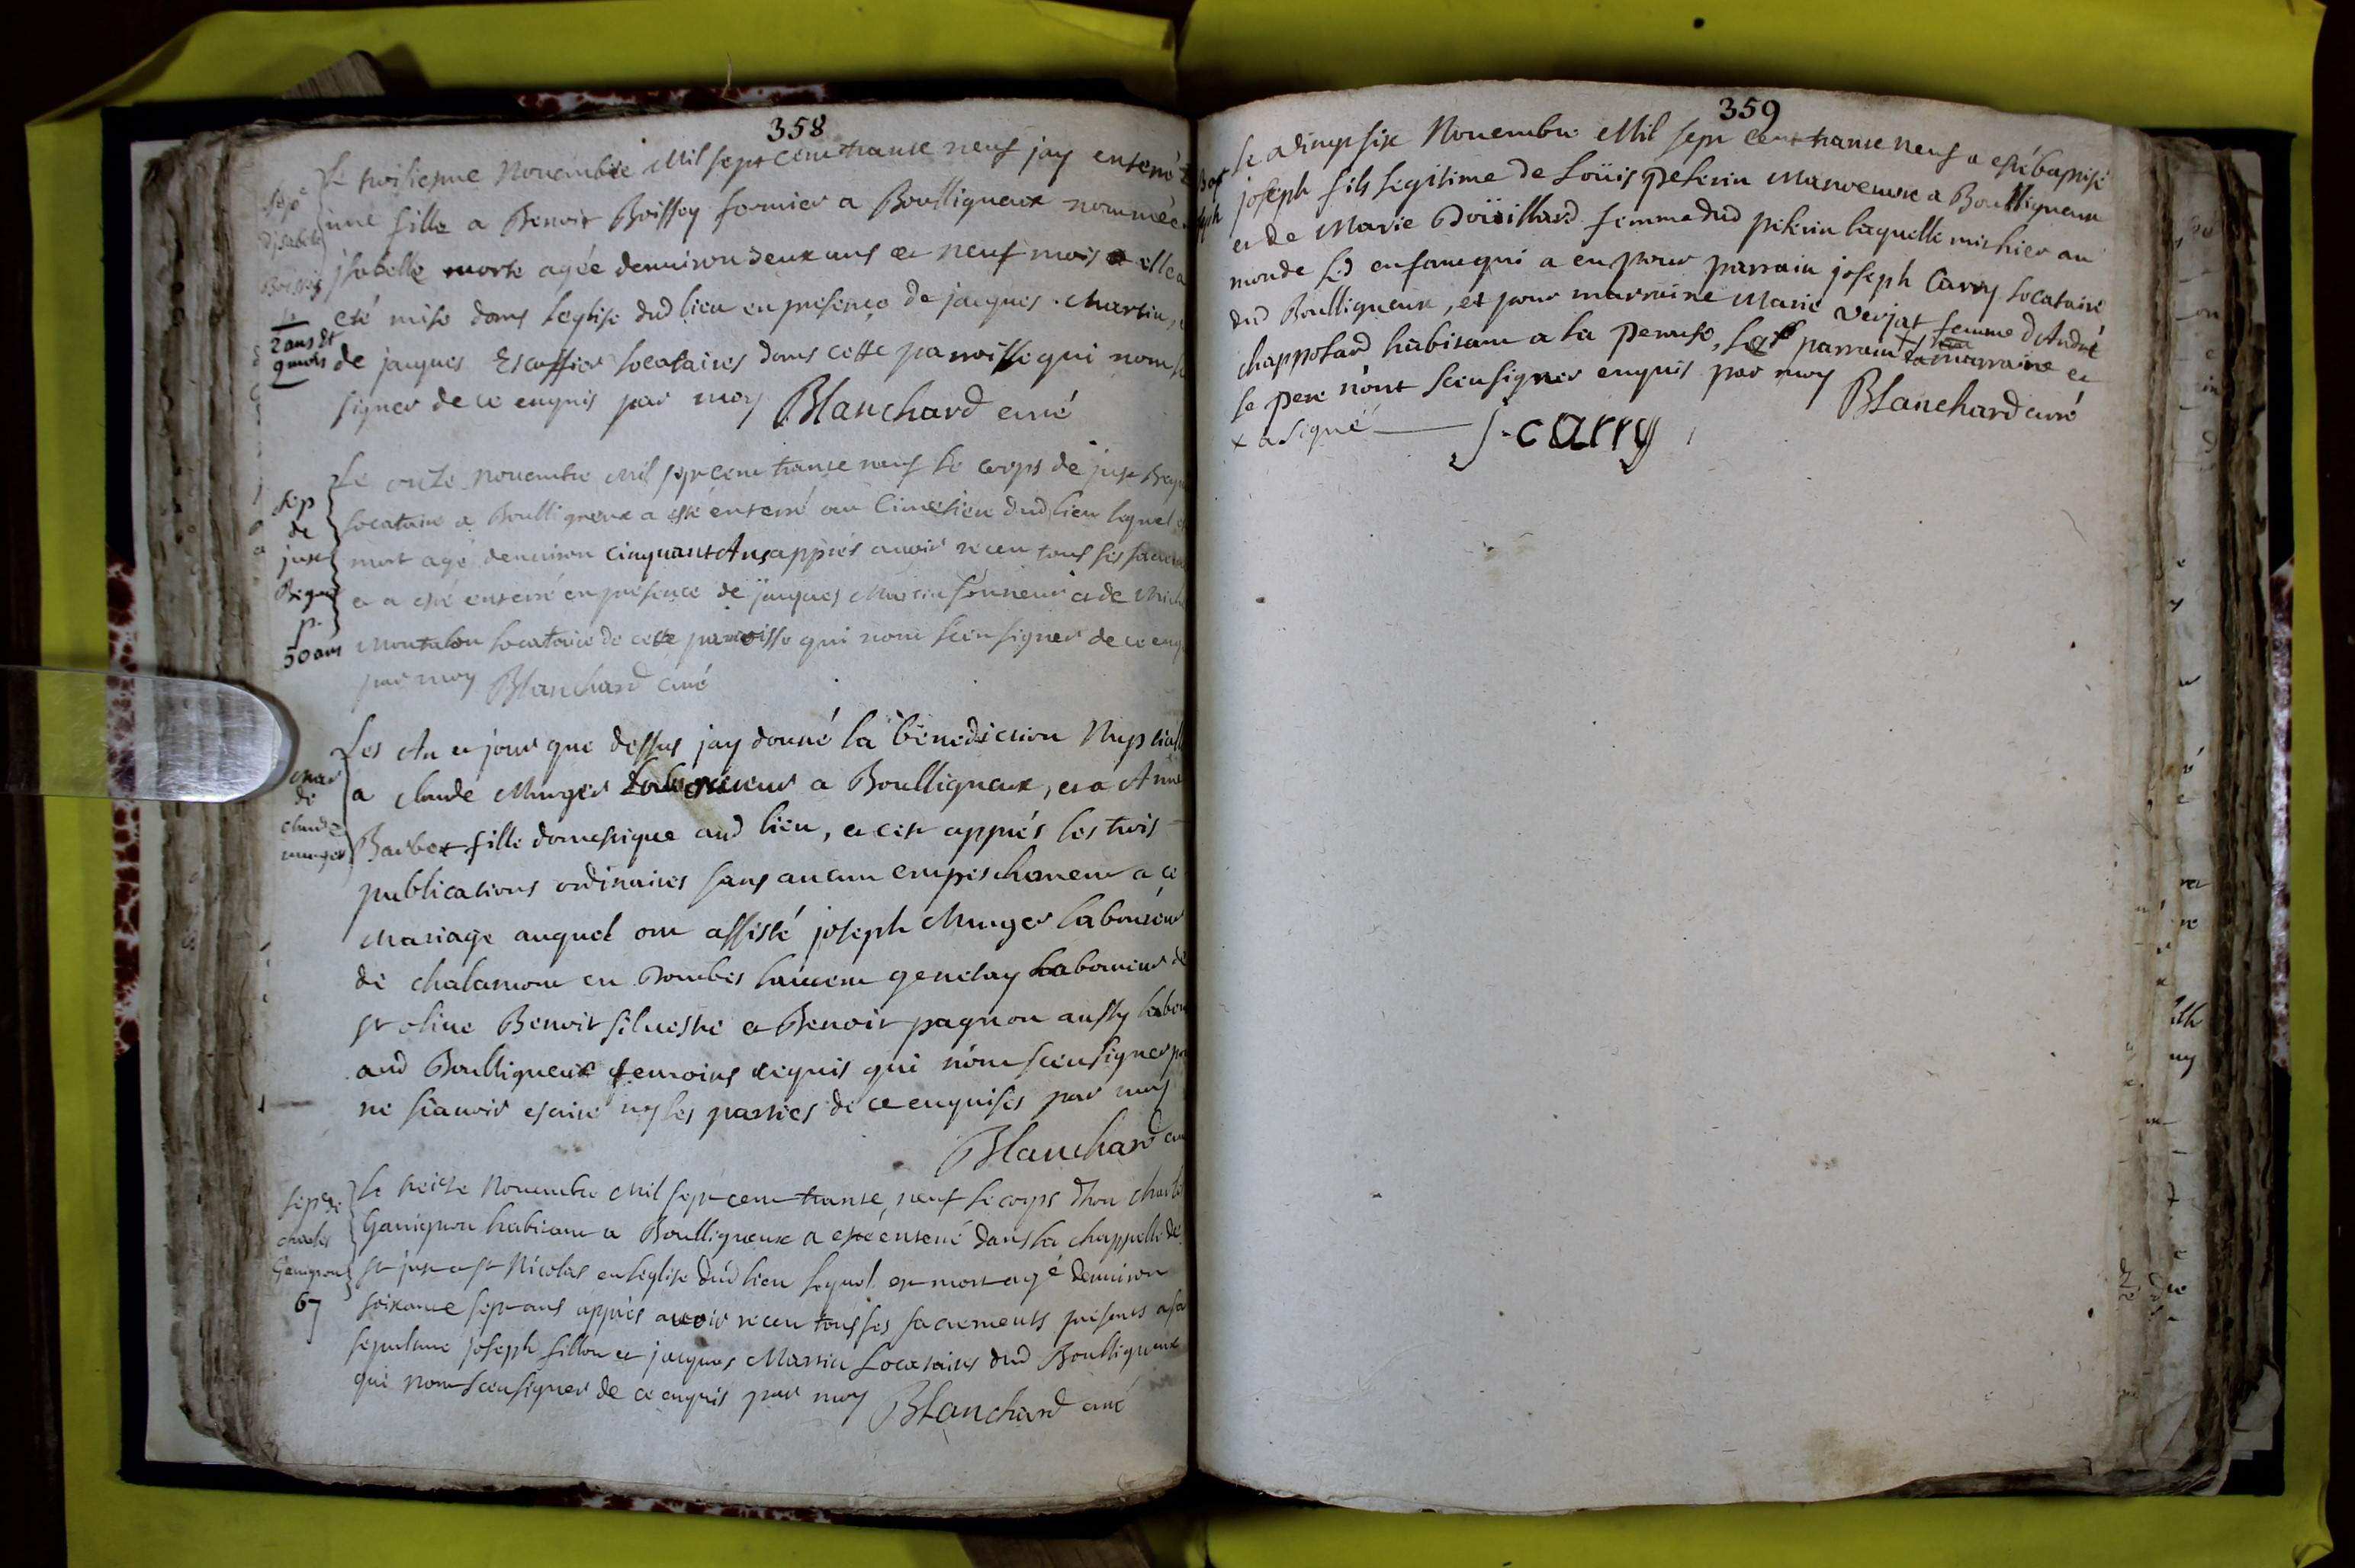 358
Le troisiesme Novembre Mil sept cent trante neuf jay enterré
une fille a Benoit Boissy fermier a Boulligneux nommée
jsabelle morte agée denuiron deux ans et neuf mois elle a
eté mise dans leglise dud lieu en presence de jacques Martin,
de jacques Escoffier locataires dans cette parroisse qui nont
signer de ce enquis par moy Blanchard curé
2 ans et
9 mois
Le onze novembre mil sept cent trante neuf le corps de just
locataire a Boulligneux a esté enterré au Cimetiere dud lieu lequel
mort agé denuiron Cinquant Ans appres auoir receu tous ses
et a esté enterré en présence de jacques Martin sonneur et de
Montalon locataire de cette parroisse qui nont sceu signer de ce
par moy Blanchard curé
sep
de
just
50 ans
Les An et jour que dessus jay donné la bénédiction Nuptiall
a claude Munger a Boulligneux, et a Anne
Barbet fille domestique aud lieu, et cest appres les trois
publications ordinaires sans aucun empeschement a ce
Mariage auquel ont assisté joseph Munger laboureur
de chalamont en Dombes laurent genelay laboureur de
st oliue Benoit siluestre et Benoit pagnon aussy
aud Boulligneux temoins requis qui nont sceu signer
ne scauoir escrire ny les parties de ce enquises par moy
Blanchard
mar
de
claude
munger
Le treize Novembre Mil sept cent trante neuf le corps dhon
Garrignon habitant a Boulligneux a esté enterré dans la chappelle de
st just et st Nicolas en leglise dud lieu lequel est mort agé denuiron
soixante sept ans appres auoir receu tous ses sacrements presents a sa
sepulture joseph fillon et jacques Martin Locataires dud Boulligneux
qui nont sceu signer de ce enquis par moy Blanchard curé
sep de
charles
67
359
Le vingt six Novembre Mil sept cent trante neuf a esté baptisé
joseph fils legitime de Loüis peterin Manoeuure a Boulligneux
et de Marie femme dud peterin laquelle mit hier au
monde led enfant qui a eu pour parrain joseph Carry locataire
dud Boulligneux, et pour marraine Marie verjat femme d André
chappotard habitant a la Perouse, parrain x la marraine et
le pere nont sceu signer enquis par moy Blanchard curé
x a signé J. carry